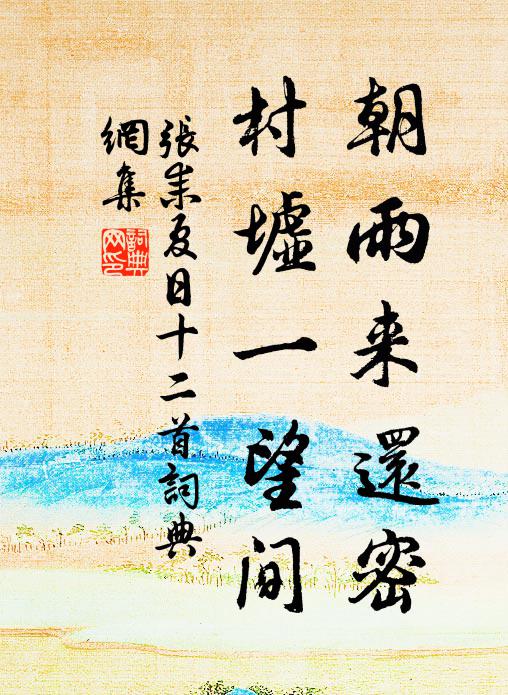 朝雨来還密
村墟一望间
張耒夏日十二首詞典
網集
詞典
网印